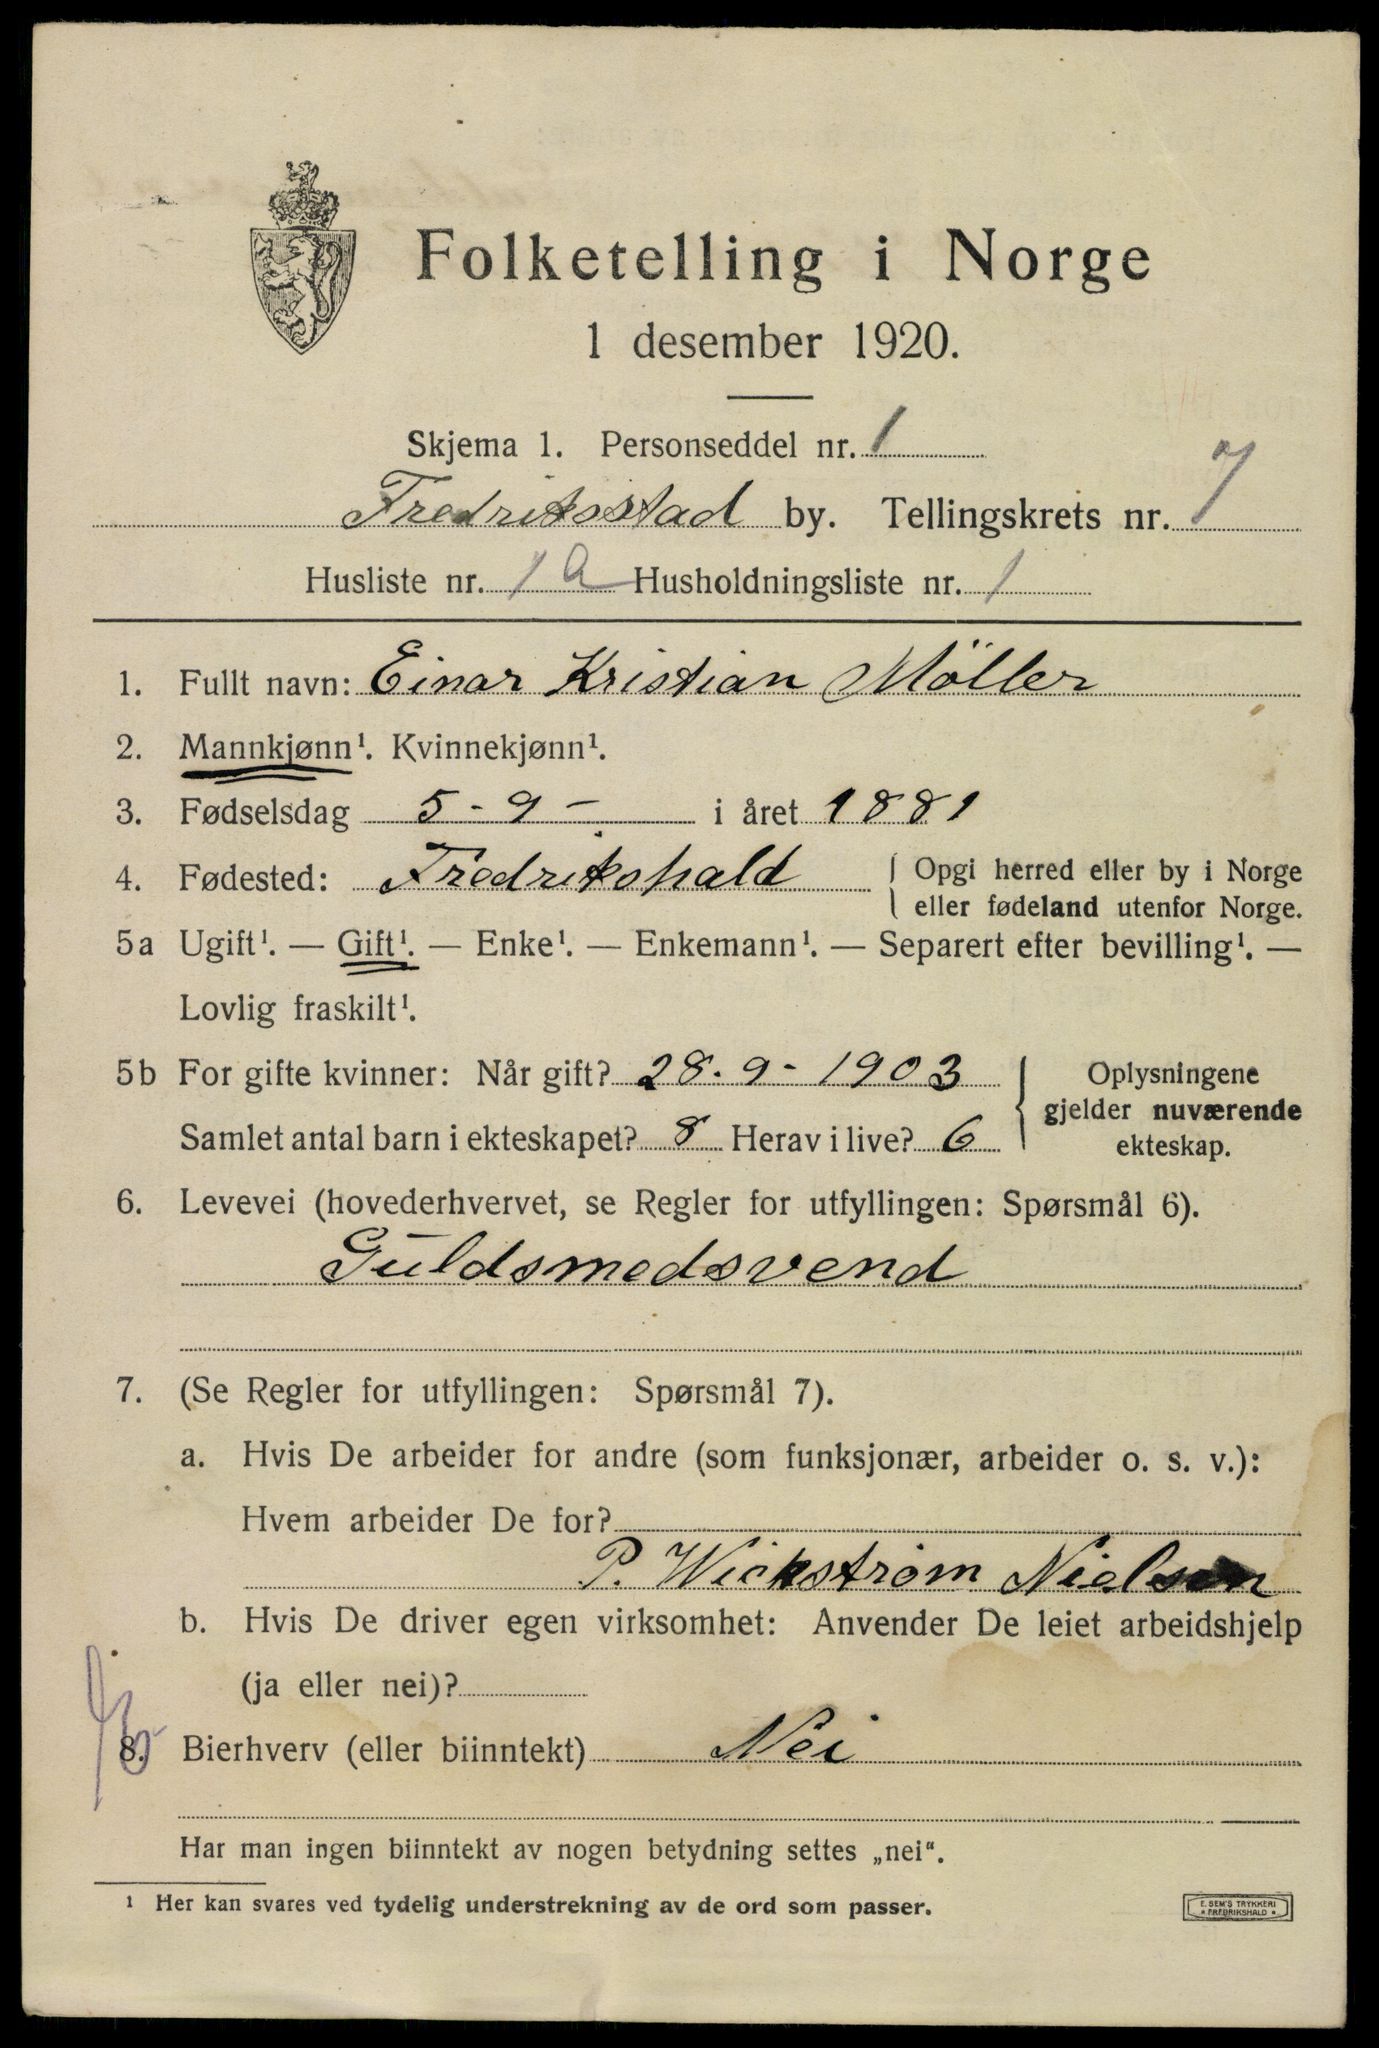 Folketelling i Norge
1 desember 1920.
Skjema 1. Personseddel nr. 1
Fredriksstad by. Tellingskrets nr. 7
Husliste nr. 1a Husholdningsliste nr. 1
1. Fullt navn: Einar Kristian Möller
2. Mannkjønn¹. Kvinnekjønn¹.
3. Fødselsdag 5-9- i året 1881
4. Fødested: Fredrikshald { Opgi herred eller by i Norge
eller fødeland utenfor Norge.
5a Ugift¹. — Gift¹. — Enke¹. — Enkemann¹. — Separert efter bevilling¹. —
Lovlig fraskilt¹.
5b For gifte kvinner: Når gift? 28.9-1903
Samlet antal barn i ekteskapet? 8 Herav i live? 6
Oplysningene
gjelder nuværende
ekteskap.
6. Levevei (hovederhvervet, se Regler for utfyllingen: Spørsmål 6).
Guldsmedsvend
7. (Se Regler for utfyllingen: Spørsmål 7).
a. Hvis De arbeider for andre (som funksjonær, arbeider o. s. v.):
Hvem arbeider De for?
P. Wickstrøm Nielsen
b. Hvis De driver egen virksomhet: Anvender De leiet arbeidshjelp
(ja eller nei)?
8. Bierhverv (eller biinntekt) Nei
Har man ingen biinntekt av nogen betydning settes „nei“.
¹ Her kan svares ved tydelig understrekning av de ord som passer.
E. SEM'S TRYKKERI
* FREDRIKSHALD *